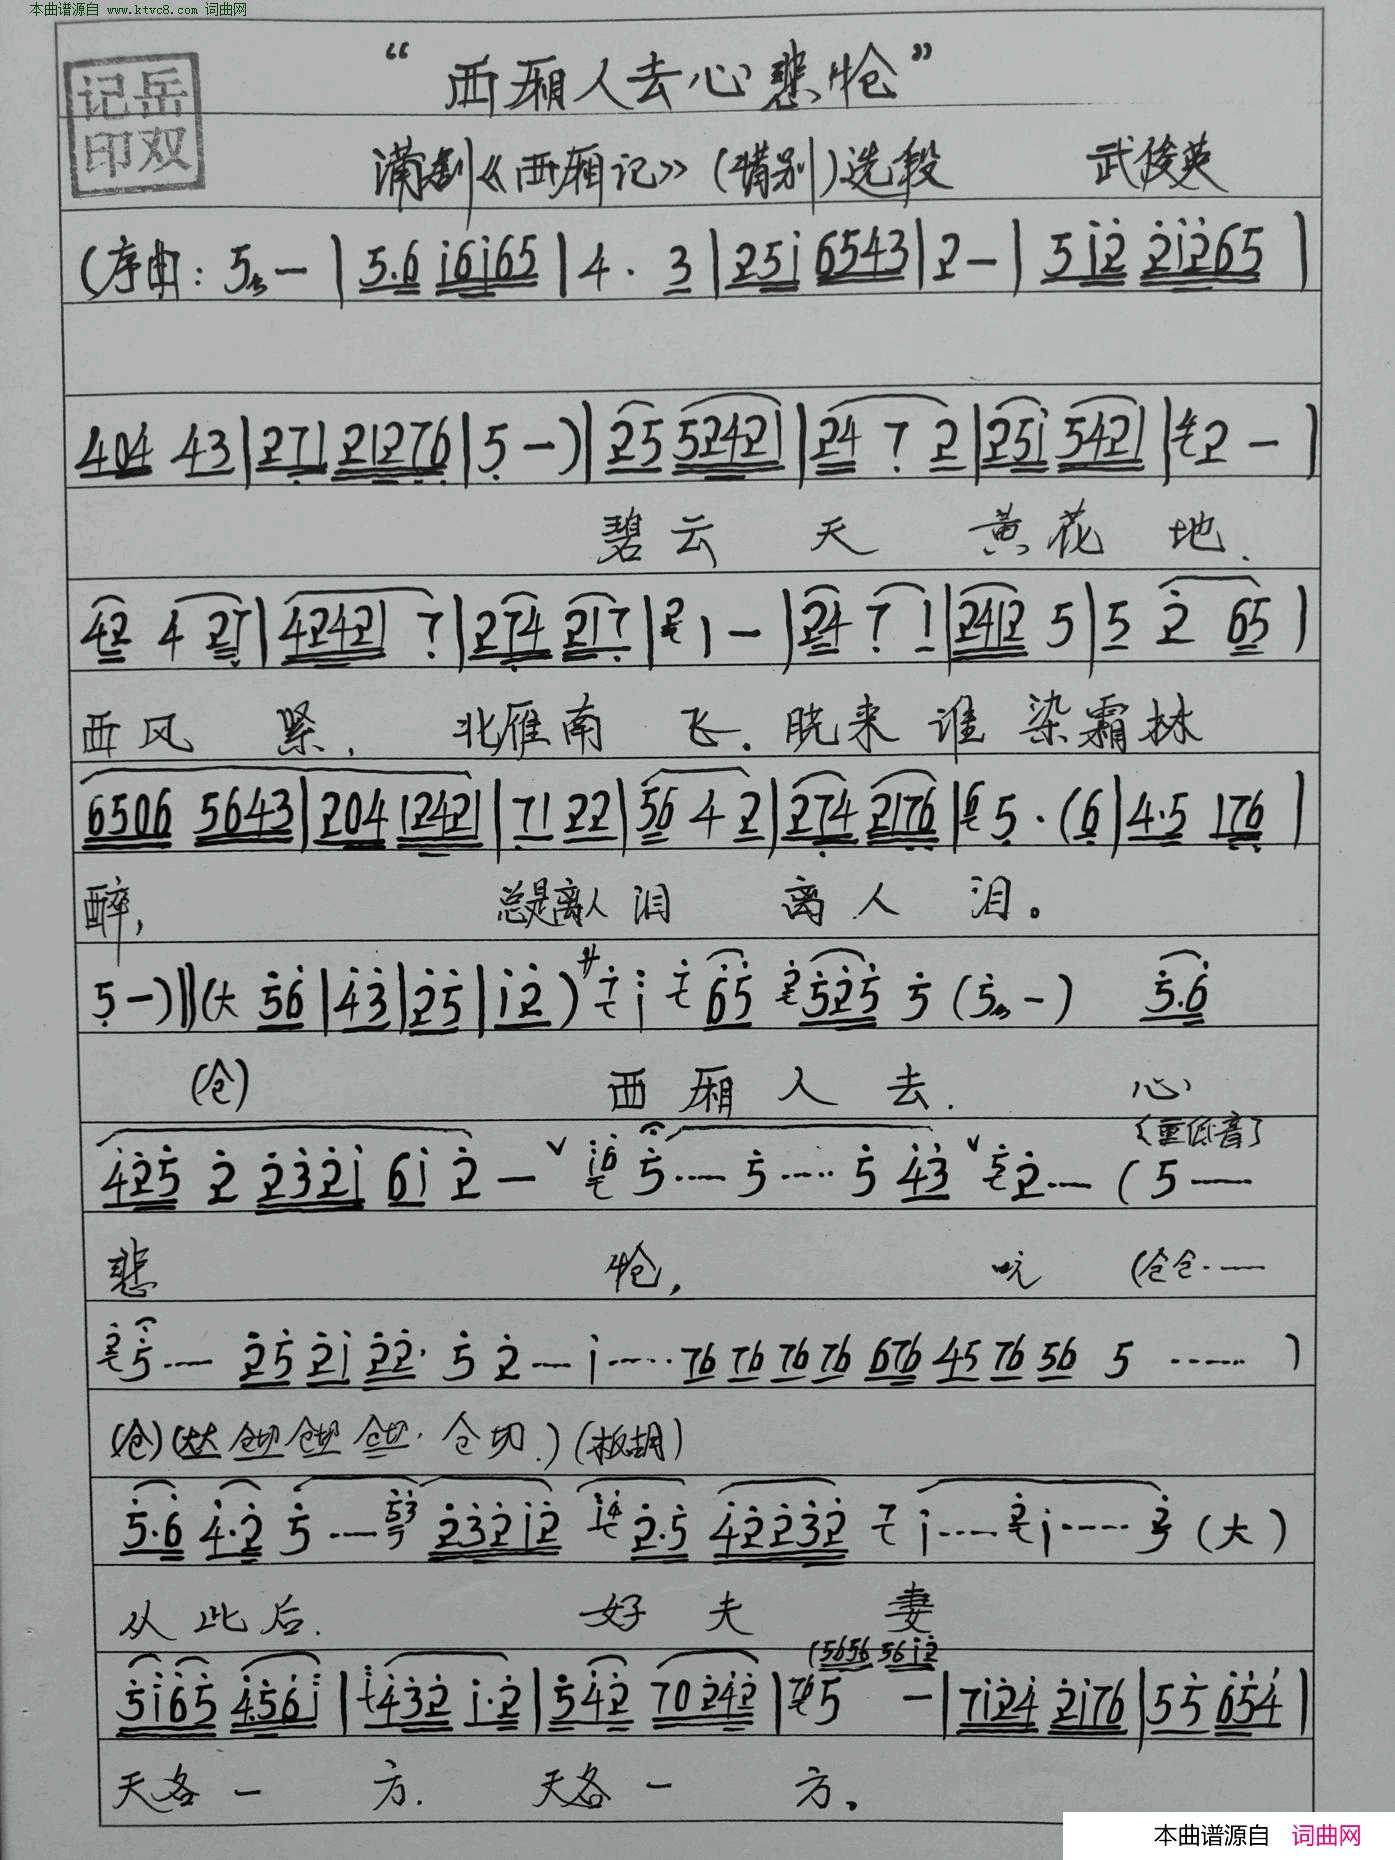 本曲谱源自 www.ktvc8.com 词曲网
“西厢人去心悲怆”
记岳
印双
蒲剧《西厢记》(惜别)选段 武俊英
(序曲: 5 — | 5.6 i6i65 | 4 · 3 | 25i 6543 | 2 — | 5i2 2i265 |
404 43 | 271 21276 | 5 —) | 25 52421 | 24 7 2 | 251 5421 | 2 — |
碧云 天 黄花 地.
42 4 27 | 42421 7 | 274 217 | 1 — | 24 7 1 | 2412 5 | 5 2 65 |
西风 紧, 北雁南 飞. 晓来 谁 染霜林
6506 5643 | 204 12421 | 71 22 | 56 4 2 | 274 2176 | 5 · (6 | 4·5 176 |
醉, 总是离人 泪 离人 泪。
5 —) ‖ (大 56 | 43 | 25 | i2) サ i 65 525 5 (5 —) 5.6
(仓) 西厢人去. 心
(重低音)
425 2 232i 6i 2 — ∨ 5…… 5…… 5 43 ∨ 2…… (5……
悲 怆, 吭 (仓仓……
5…… 25 2i 22· 5 2…… i…… 76 76 76 76 676 45 76 56 5 …… )
(仓)(大大 仓切 仓切 仓切· 仓切.)(板胡)
5.6 4.2 5 …… 232i2 2.5 42232 i…… i…… (大)
从此后. 好夫 妻
(5656 56i2
5i65 456i | 432 i·2 | 542 70242 | 5 — | 7i24 2i76 | 55 654 |
天各一 方. 天各一 方。
本曲谱源自 词曲网